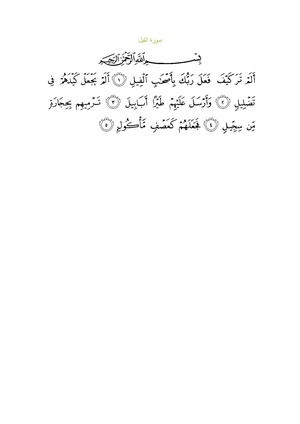 سورة الفيل
بِسْمِ اللَّهِ الرَّحْمَٰنِ الرَّحِيمِ
أَلَمْ تَرَ كَيْفَ فَعَلَ رَبُّكَ بِأَصْحَابِ الْفِيلِ ﴿١﴾ أَلَمْ يَجْعَلْ كَيْدَهُمْ فِي
تَضْلِيلٍ ﴿٢﴾ وَأَرْسَلَ عَلَيْهِمْ طَيْرًا أَبَابِيلَ ﴿٣﴾ تَرْمِيهِم بِحِجَارَةٍ
مِّن سِجِّيلٍ ﴿٤﴾ فَجَعَلَهُمْ كَعَصْفٍ مَّأْكُولٍ ﴿٥﴾